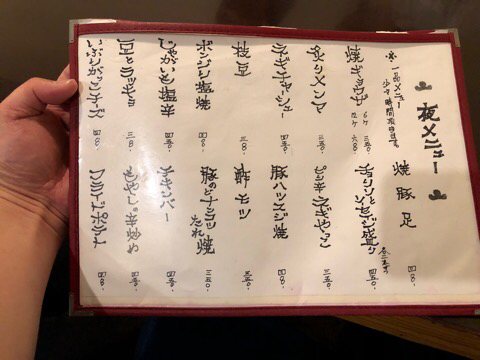 夜メニュー
※一品メニュー
少々時間頂きます。
焼ギョウザ 6ヶ 三五〇.
12ヶ 六八〇.
炙りメンマ 三五〇.
ネギチャーシュー 四五〇.
枝豆 三八〇.
ボンジリ塩焼 四八〇.
じゃがいも塩辛 四五〇.
豆とラッキョ 三八〇.
いぶりがっこチーズ 四八〇.
焼豚足 四八〇.
チョリソとソーセージ盛り 各三本ずつ 四五〇.
ピリ辛ネギやっこ 三五〇.
豚ハツレジ焼
酢モツ 三五〇.
豚のどナンコツたれ焼 三五〇.
チキンバー 四五〇.
もやしの辛炒め 四五〇.
フライドポテト 四八〇.